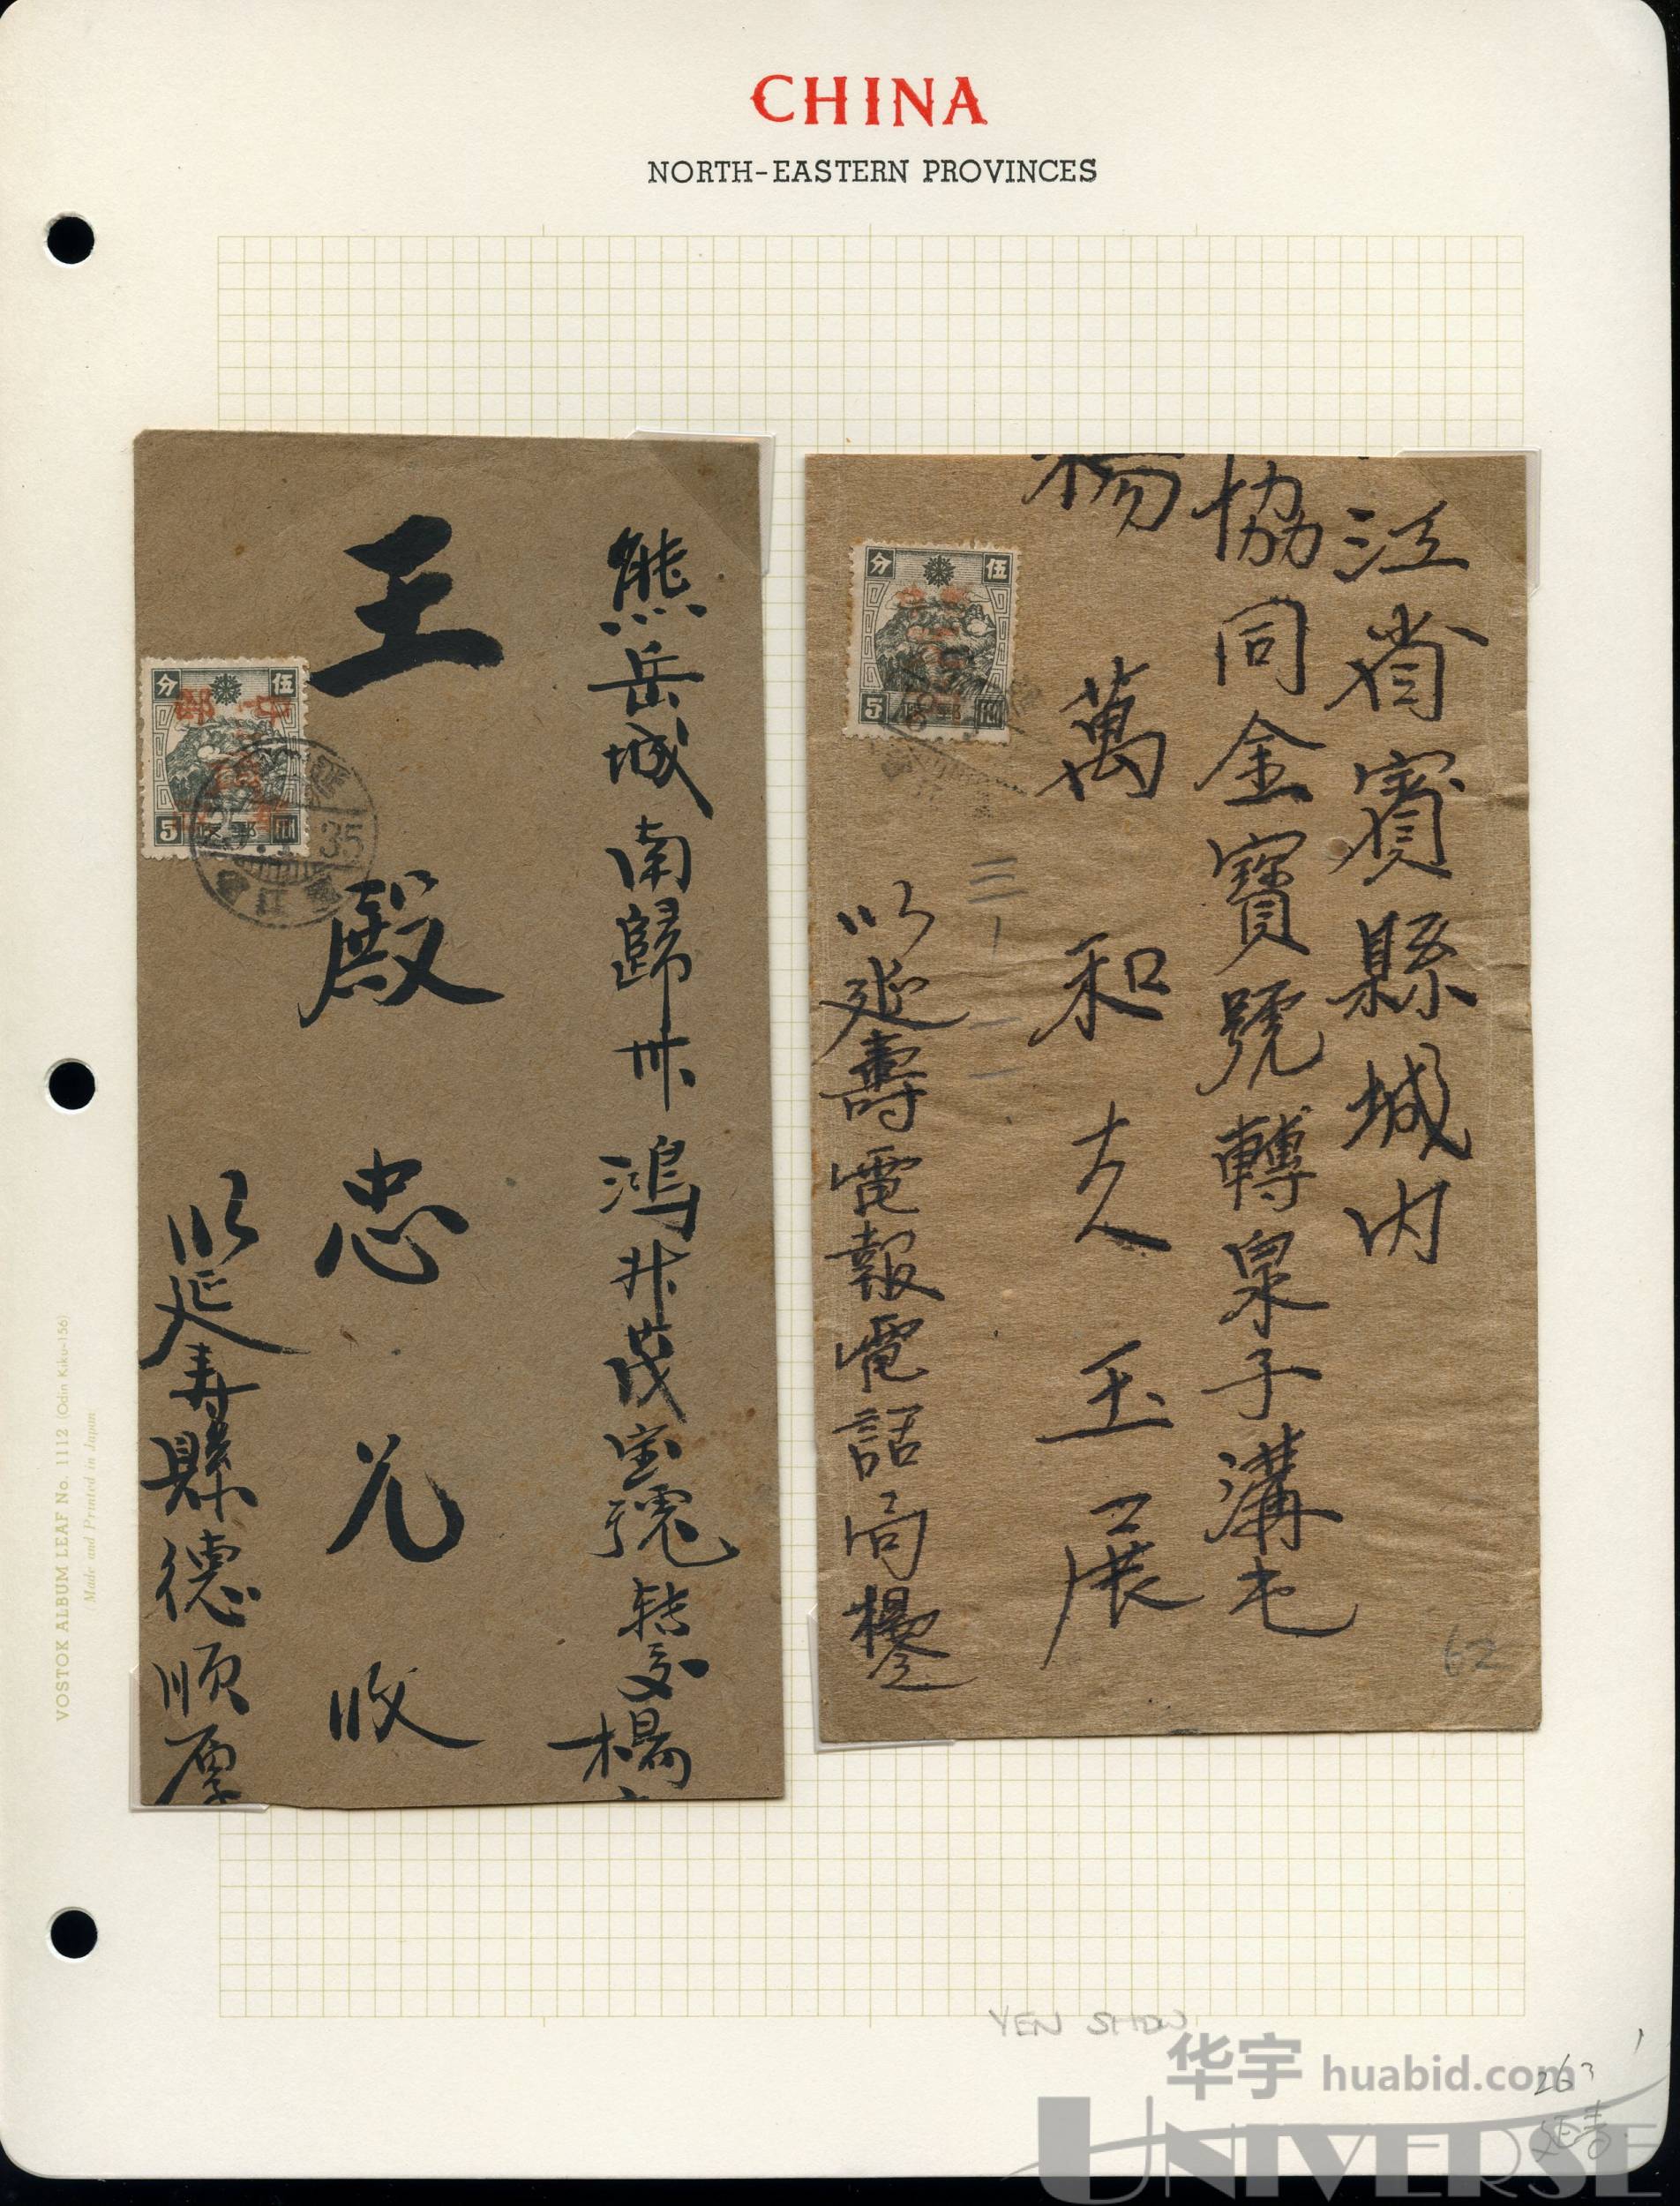 CHINA
NORTH-EASTERN PROVINCES
熊岳城南歸卅鴻茂宝號转交楊
王殿忠兄收
以延寿縣德順厚
伍分
5
35
江省賓縣城内
協同金寶號轉泉子溝屯
楊萬和大人玉展
以延壽電報電話局楊
伍分
5
62
VOSTOK ALBUM LEAF No. 1112 (Odin Kiku-156)
Made and Printed in Japan
YEN SHOW
华宇 huabid.com
UNIVERSE
263
延寿